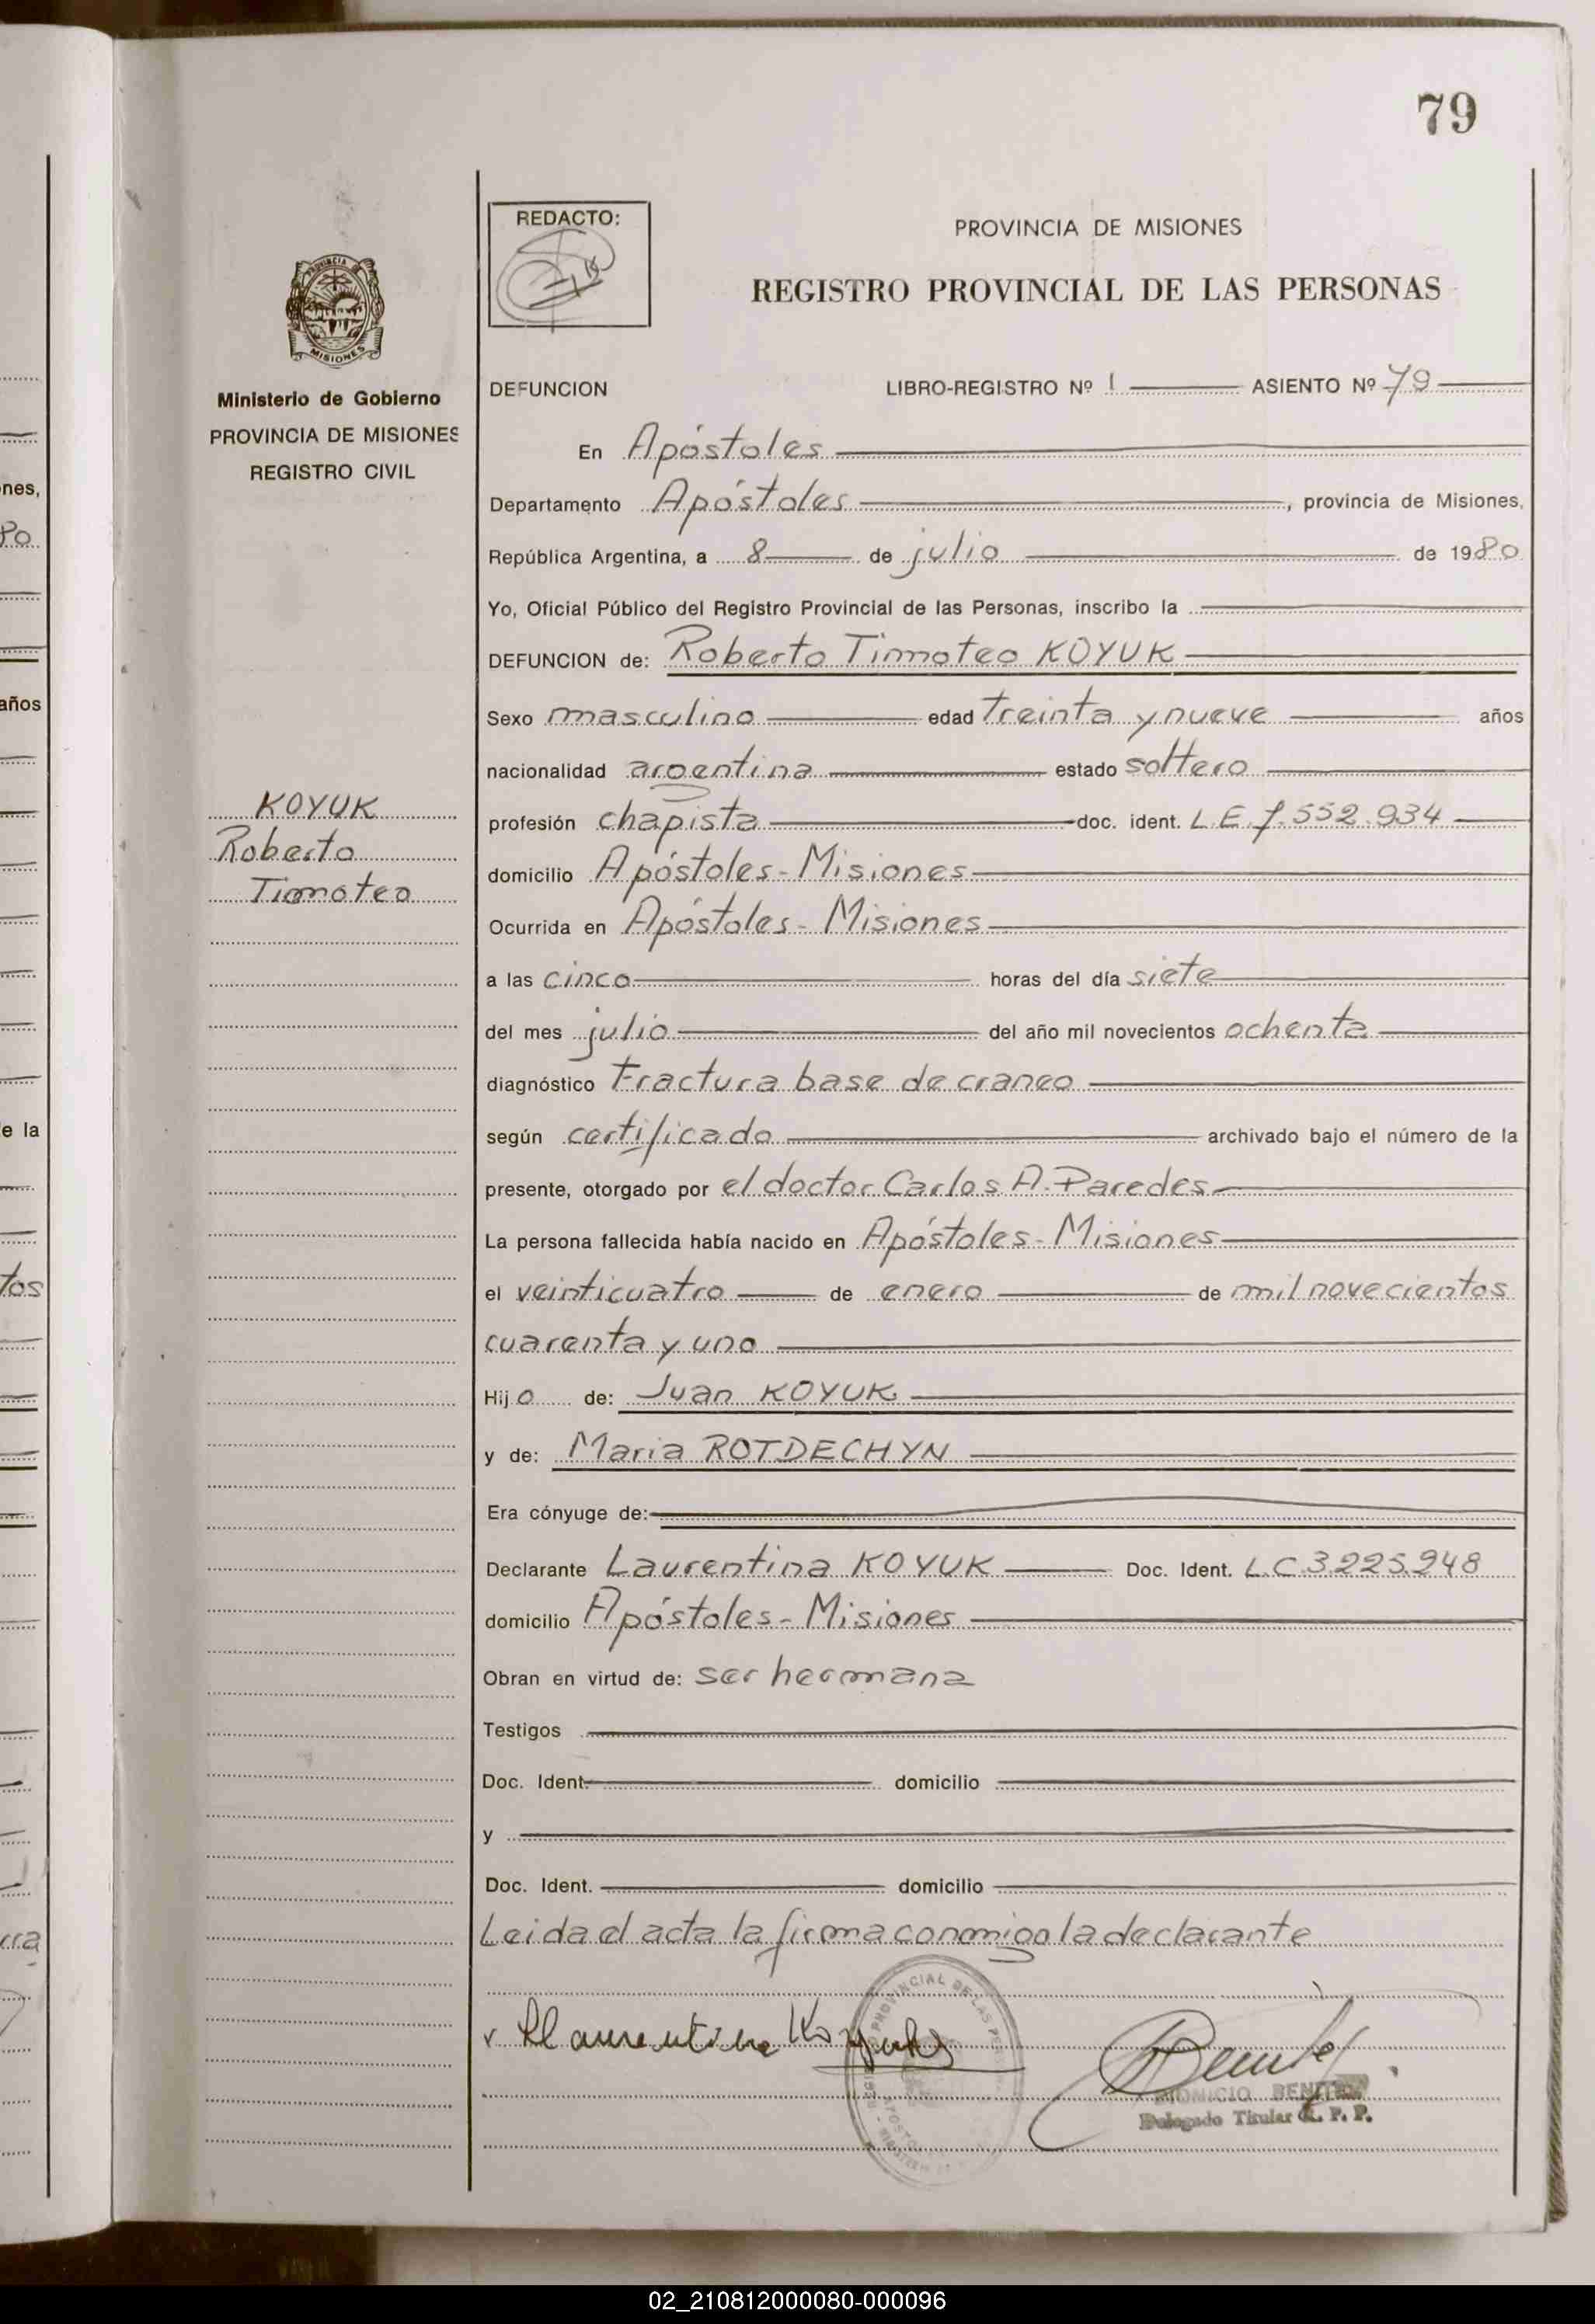 79
REDACTO:
PROVINCIA DE MISIONES
REGISTRO PROVINCIAL DE LAS PERSONAS
PROVINCIA DE
MISIONES
Ministerio de Gobierno
PROVINCIA DE MISIONES
REGISTRO CIVIL
KOYUK
Roberto
Timoteo
DEFUNCION LIBRO-REGISTRO Nº 1 ASIENTO Nº 79
En Apóstoles
Departamento Apóstoles, provincia de Misiones,
República Argentina, a 8 de julio de 1980
Yo, Oficial Público del Registro Provincial de las Personas, inscribo la
DEFUNCION de: Roberto Timoteo KOYUK
Sexo masculino edad treinta y nueve años
nacionalidad argentina estado soltero
profesión chapista doc. ident. L.E. 7.552.934
domicilio Apóstoles - Misiones
Ocurrida en Apóstoles - Misiones
a las cinco horas del día siete
del mes julio del año mil novecientos ochenta
diagnóstico Fractura base de craneo
según certificado archivado bajo el número de la
presente, otorgado por el doctor Carlos A. Paredes
La persona fallecida había nacido en Apóstoles - Misiones
el veinticuatro de enero de mil novecientos
cuarenta y uno
Hijo de: Juan KOYUK
y de: Maria ROTDECHYN
Era cónyuge de:
Declarante Laurentina KOYUK Doc. Ident. L.C. 3.225.248
domicilio Apóstoles - Misiones
Obran en virtud de: ser hermana
Testigos
Doc. Ident. domicilio
y
Doc. Ident. domicilio
Leida el acta la firma conmigo la declarante
BENITEZ
Delegado Titular R. P. P.
nes,
80
años
e la
tos
rra
02_210812000080-000096